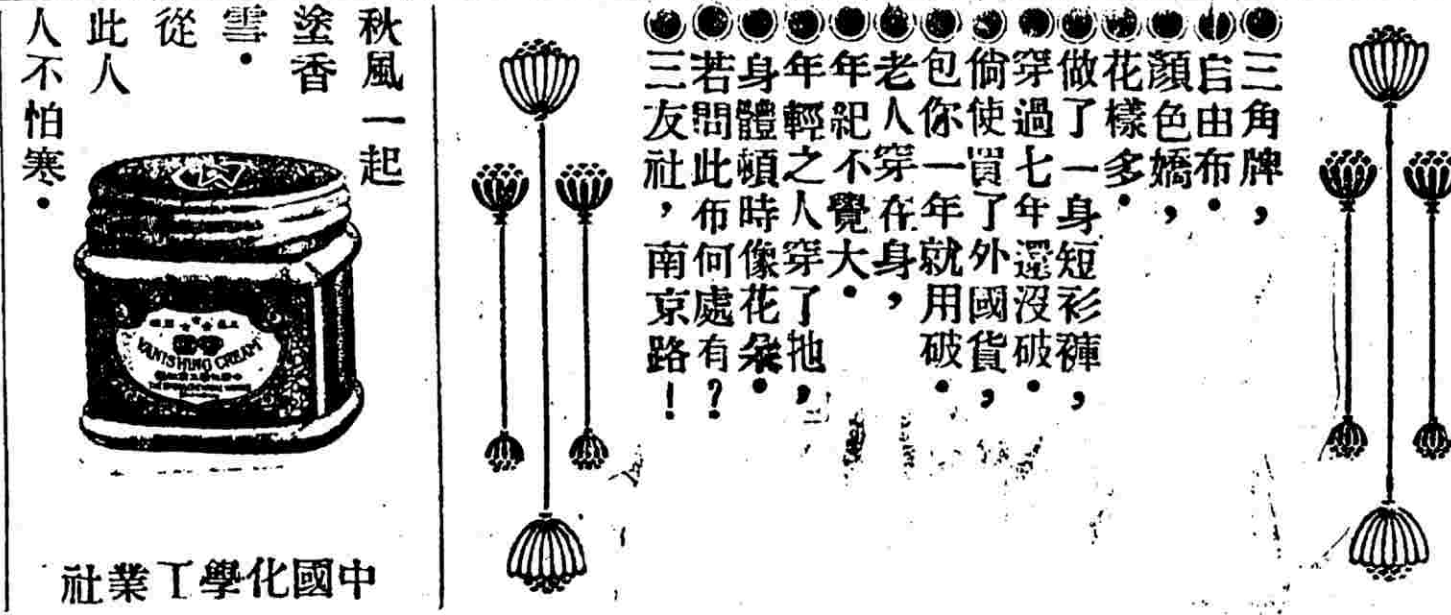 三角牌，
自由布．
顏色嬌，
花樣多．
做了一身短衫褲，
穿過七年還沒破．
倘使買了外國貨，
包你一年就用破．
老人穿在身，
年紀不覺大．
年輕之人穿了牠，
身體頓時像花朵．
若問此布何處有？
三友社，南京路！
秋風一起
塗香
雪．
從
此人
人不怕寒．
VANISHING CREAM
中國化學工業社